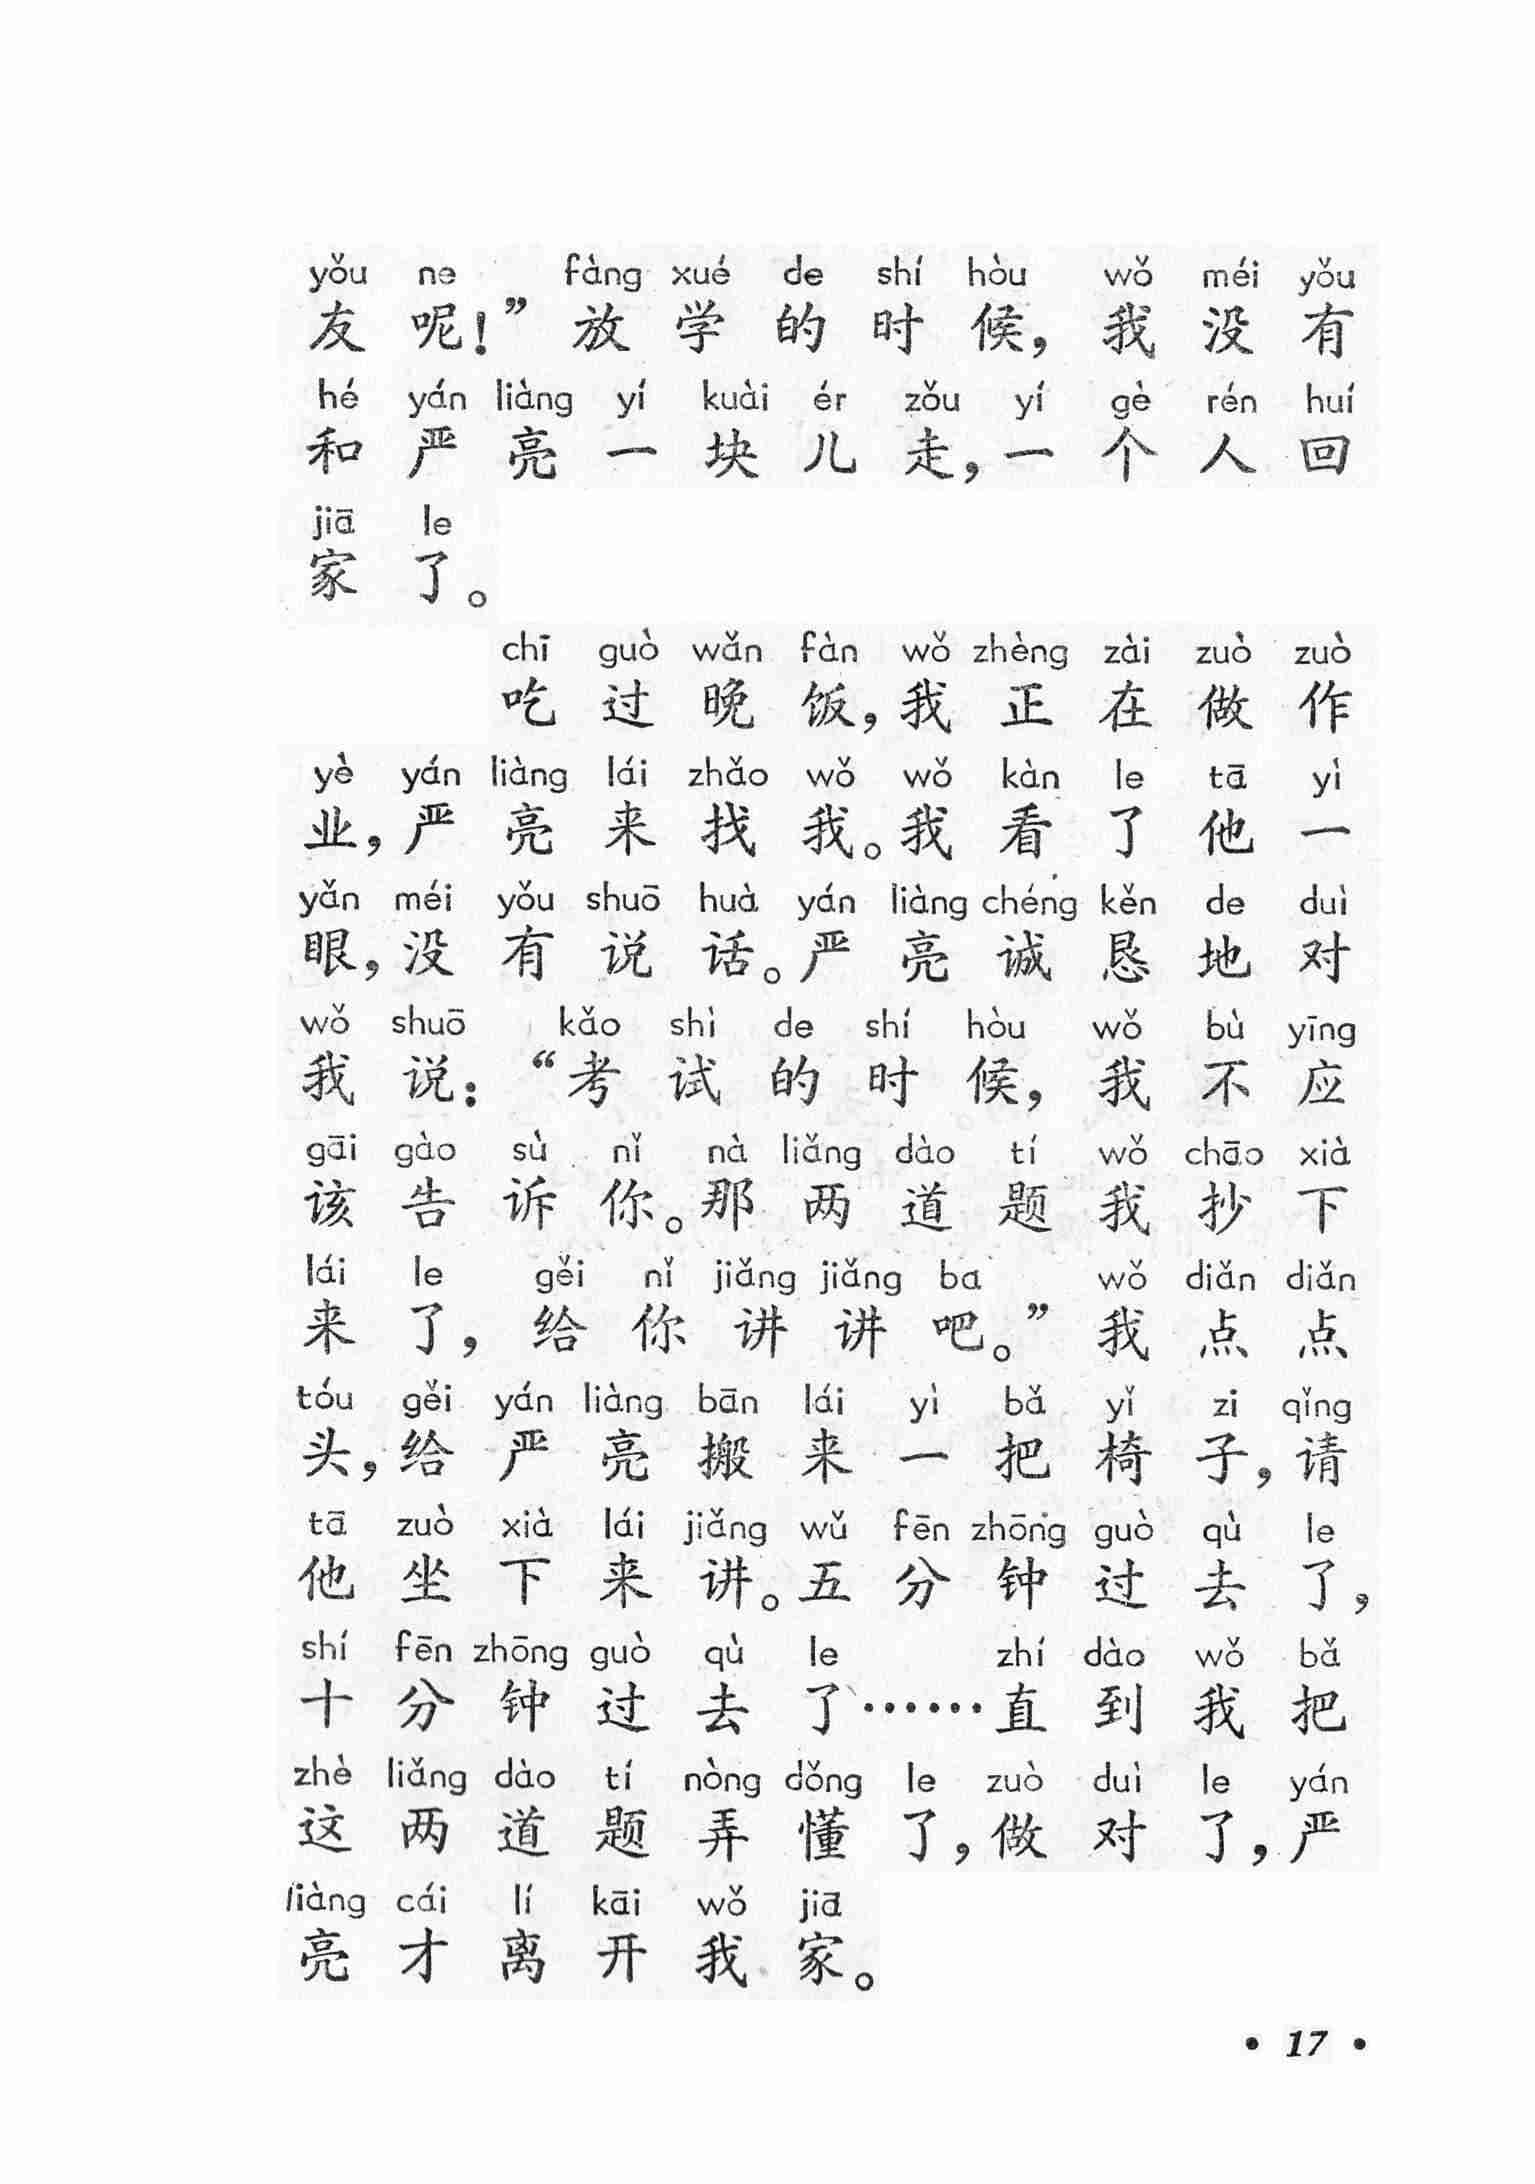 yǒu ne fàng xué de shí hòu wǒ méi yǒu
友呢！”放学的时候，我没有
hé yán liàng yí kuài ér zǒu yí gè rén huí
和严亮一块儿走，一个人回
jiā le
家了。
chī guò wǎn fàn wǒ zhèng zài zuò zuò
吃过晚饭，我正在做作
yè yán liàng lái zhǎo wǒ wǒ kàn le tā yì
业，严亮来找我。我看了他一
yǎn méi yǒu shuō huà yán liàng chéng kěn de duì
眼，没有说话。严亮诚恳地对
wǒ shuō kǎo shì de shí hòu wǒ bù yīng
我说：“考试的时候，我不应
gāi gào sù nǐ nà liǎng dào tí wǒ chāo xià
该告诉你。那两道题我抄下
lái le gěi nǐ jiǎng jiǎng ba wǒ diǎn diǎn
来了，给你讲讲吧。”我点点
tóu gěi yán liàng bān lái yì bǎ yǐ zi qǐng
头，给严亮搬来一把椅子，请
tā zuò xià lái jiǎng wǔ fēn zhōng guò qù le
他坐下来讲。五分钟过去了，
shí fēn zhōng guò qù le zhí dào wǒ bǎ
十分钟过去了……直到我把
zhè liǎng dào tí nòng dǒng le zuò duì le yán
这两道题弄懂了，做对了，严
liàng cái lí kāi wǒ jiā
亮才离开我家。
• 17 •